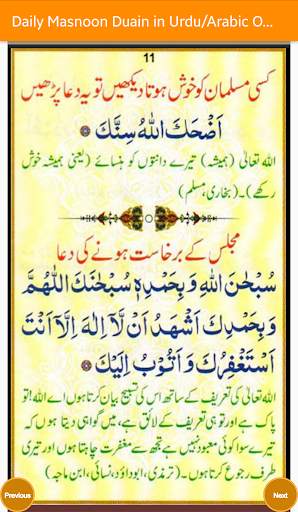 Daily Masnoon Duain in Urdu/Arabic O...
11
کسی مسلمان کو خوش ہوتا دیکھیں تو یہ دعا پڑھیں
اَضْحَكَ اللهُ سِنَّكَ
اللہ تعالیٰ (ہمیشہ) تیرے دانتوں کو ہنسائے (یعنی ہمیشہ خوش
رکھے)۔ (بخاری، مسلم)
مجلس کے برخاست ہونے کی دعا
سُبْحٰنَ اللهِ وَبِحَمْدِهٖ سُبْحٰنَكَ اللّٰهُمَّ
وَبِحَمْدِكَ اَشْهَدُ اَنْ لَّآ اِلٰهَ اِلَّآ اَنْتَ
اَسْتَغْفِرُكَ وَاَتُوْبُ اِلَيْكَ
اللہ تعالیٰ کی تعریف کے ساتھ اس کی تسبیح بیان کرتا ہوں اے اللہ! تو
پاک ہے اور تو ہی تعریف کے لائق ہے، میں گواہی دیتا ہوں کہ
تیرے سوا کوئی معبود نہیں ہے تجھ سے مغفرت چاہتا ہوں اور تیری
طرف رجوع کرتا ہوں۔ (ترمذی، ابوداؤد، نسائی، ابن ماجہ)
Previous
Next